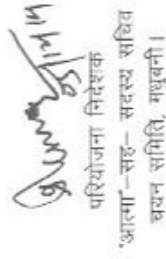 परियोजना निदेशक
"आत्मा"–सह– सदस्य सचिव
चयन समिति, मधुबनी।